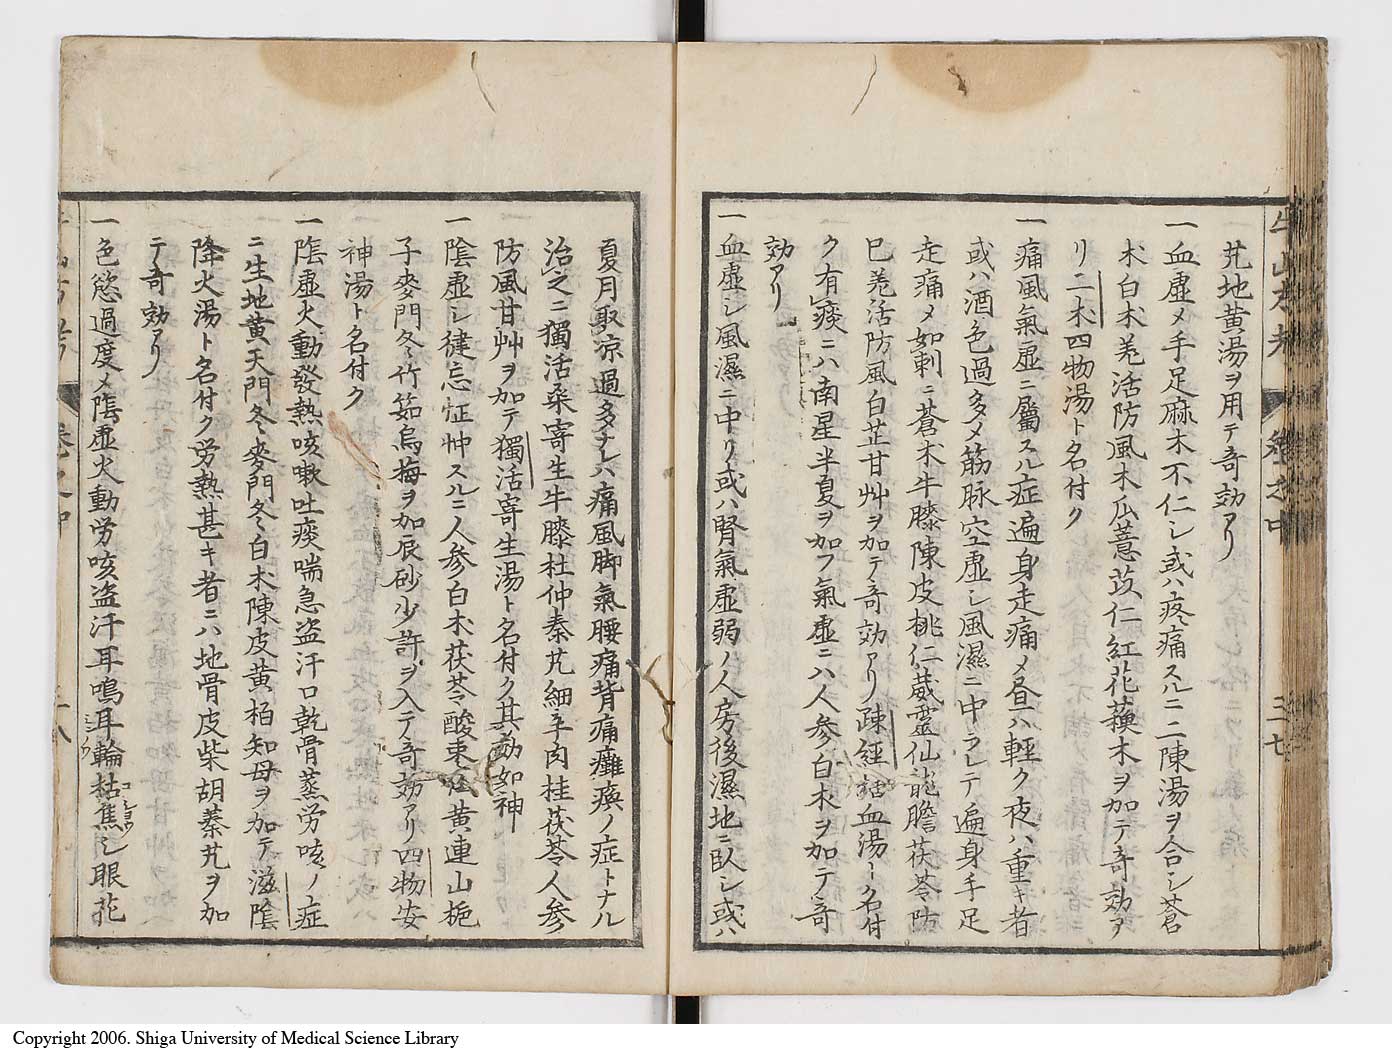 艽地黄湯ヲ用テ竒効アリ
一血虚メ手足麻木不仁シ或ハ疼痛スルニ二陳湯ヲ合シ蒼
术白术羗活防風木瓜薏苡仁紅花蘓木ヲ加テ竒効ア
リ二术四物湯ト名付ク
一痛風氣虚ニ屬スル症遍身走痛メ昼ハ軽ク夜ハ重キ者
或ハ酒色過多メ筋脉空虚シ風濕ニ中ラレテ遍身手足
走痛メ如刺ニ蒼术牛膝陳皮桃仁葳霊仙龍膽茯苓防
巳羗活防風白芷甘艸ヲ加テ竒効アリ疎經活血湯ト名付
ク有痰ニハ南星半夏ヲ加フ氣虚ニハ人参白术ヲ加テ竒
効アリ
一血虚シ風濕ニ中リ或ハ腎氣虚弱ノ人房後濕地ニ臥シ或ハ
牛山方考 巻之中 三七
夏月取凉過多ナレハ痛風脚氣腰痛背痛癱瘓ノ症トナル
治之ニ獨活桒寄生牛膝杜仲秦艽細辛肉桂茯苓人参
防風甘艸ヲ加テ獨活寄生湯ト名付ク其効如神
一陰虚シ徤忘怔忡スルニ人参白术茯苓酸枣仁黄連山梔
子麥門冬竹筎烏梅ヲ加辰砂少許ヲ入テ竒効アリ四物安
神湯ト名付ク
一陰虚火動發熱咳嗽吐痰喘急盗汗口乾骨蒸労咳ノ症
ニ生地黄天門冬麥門冬白术陳皮黄栢知母ヲ加テ滋陰
降火湯ト名付ク労熱甚キ者ニハ地骨皮柴胡蓁艽ヲ加
テ竒効アリ
一色慾過度メ陰虚火動労咳盗汗耳鳴耳輪枯焦シ眼花
Copyright 2006. Shiga University of Medical Science Library